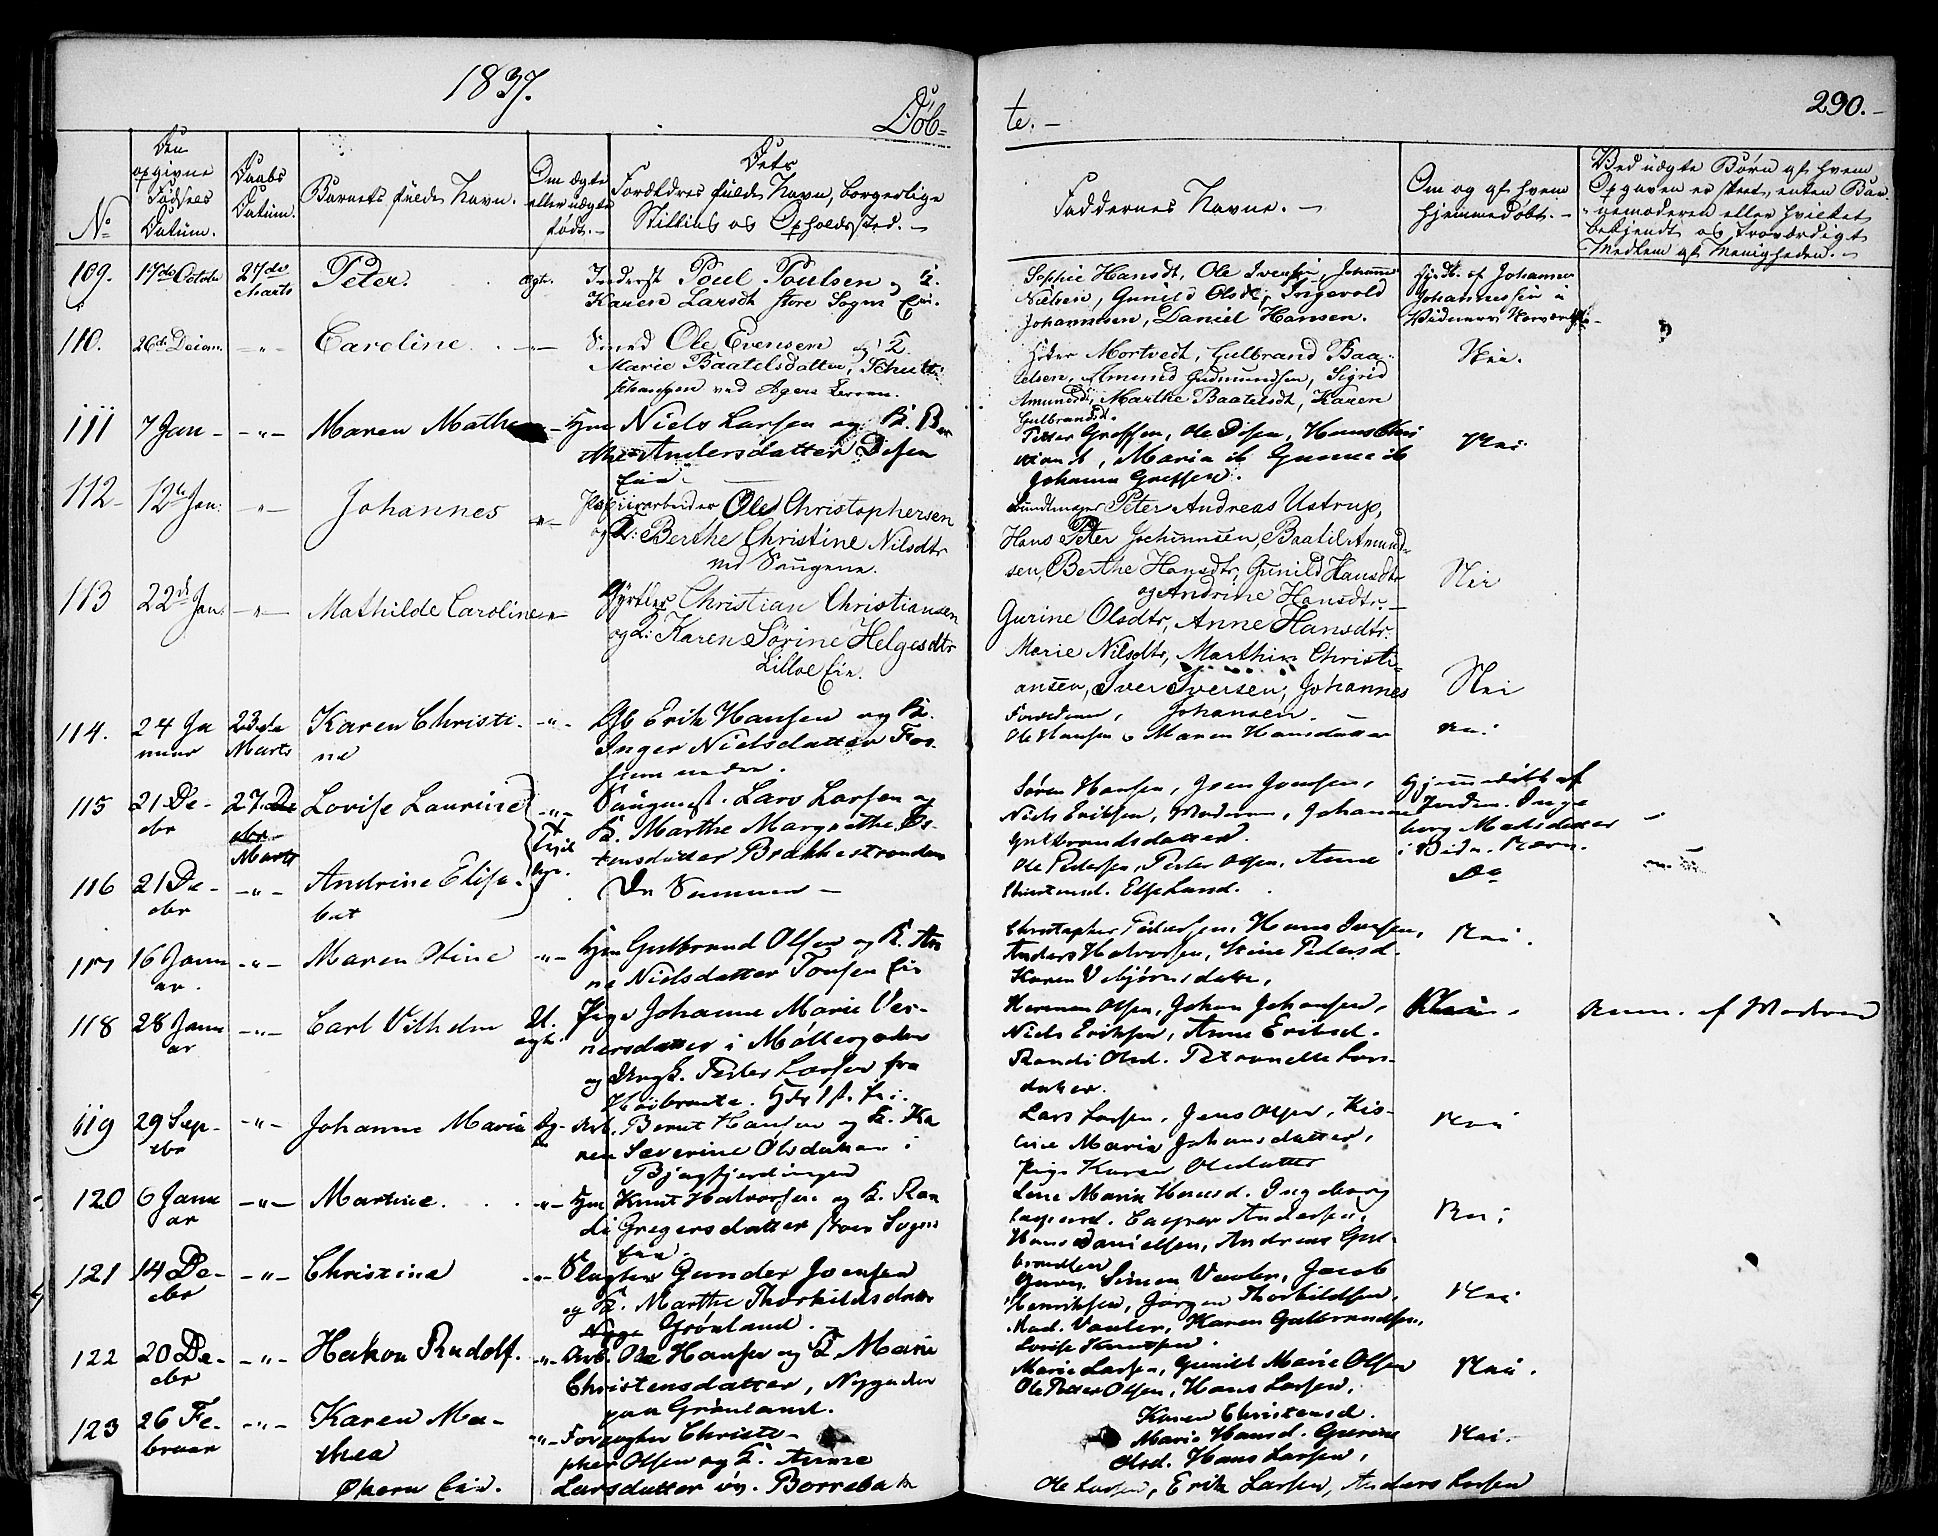 1837.
Døb-
te. -
290. -
No
Den opgivne Fødsels Datum.
Daabs Datum.
Barnets fulde Navn.
Om ægte eller uægte født. -
Dets Forældres fulde Navn, borgerlige Stilling og Opholdssted. -
Faddernes Navne. -
Om og af hvem hjemmedøbt. -
Ved uægte Børn af hvem Opgaven er skeet, enten Barnemoderen eller hvilket bekjendt og troværdigt Medlem af Menigheden. -
109. 17de Octobr 27de Marts Peter. ægte. Inderst Poul Poulsen og K.
Karen Larsdt store Sogns Eie.
Sophie Hansdt, Ole Ivensen, Johanne
Nielsen, Gunild Olsdt, Ingevold
Johannesen, Daniel Hansen.
110. 26de Decem. -"- Caroline. Smed Ole Evensen og K.
Marie Baatelsdatter,
ved Agers Elven.
Mortvedt, Gulbrand Baa-
telsen, Amund Gudmundsen, Sigrid
Amundsdt, Marthe Baatelsdt, Karen
Gulbrandsdt.
Nei.
111 7 Jan - -"- Maren Mathea -"- Hmd Niels Larsen og K. Ber
the Andersdatter Disen
Eie.
Peter Greffsen, Ole Disen, Hans Chri
Maria ib Gunne ib
Johanna Greffsen.
Nei
112- 12te Jan: -"- Johannes -"- Ole Christophersen
og K: Berthe Christine Nilsdtr
ved Saugene.
Peter Andreas Ustrup,
Hans Peter Johannsen, Baatil Amund-
sen, Berthe Hansdtr, Gunild Hansdtr
og Andrine Hansdtr. -
Nei
113 22de Jan. -"- Mathilde Caroline -"- Gjørtler Christian Christiansen
og K: Karen Sørine Helgesdtr
Lilloe Eie.
Gurine Olsdtr, Anne Hansdtr.
Marie Nilsdtr, Marthin Christi-
ansen, Iver Iversen, Johannes
Johansen.
Nei
114. 24 Ja
nuar
23de
Marts
Karen Christi-
ne
-"- Gb Erik Hansen og K.
Inger Nielsdatter
Ole Hansen Maren Hansdatter
Nei
115 21 De-
cbr
27. De
cbr
Marts
Lovise Laurine -"-
Tvil
linger
Saugmest. Lars Larsen og
K. Marthe Margrethe
tensdatter Brækkestranden
Søren Hansen, Joen Jonsen,
Niels Eriksen, Moderen, Johanne
Gulbrandsdatter.
Hjemmedøbt af
Jordm. Inge
borg Matisdatter
116 21 De-
cbr
-"- Andrine Elisa-
bet
De Samme -
Ole Pedersen, Peder Olsen, Anne
Else Lund.
Do
117 16 Janu
ar.
-"- Maren Oline -"- Hmd Gulbrand Olsen og K. An
ne Nielsdatter Tonsen Eie
Christopher Pedersen, Hans Iversen,
Anders Halvorsen, Stine Pedersd.
Karen Vebjørnsdatter,
Nei.
118 28 Janu
ar
-"- Carl Vilhelm U-
ægte
Pige Johanne Marie Ver-
nersdatter i Møllergaden
og Ungk. Peder Larsen fra
Høibraaten.
Herman Olsen, Johan Johansen,
Niels Eriksen, Anne Eriksd.
Randi Olsd. Petronelle Lars-
datter.
Nei. Anm. af Moderen
119 29 Sep-
tbr
-"- Johanne Marie Æg-
te
Arb. Bernt Hansen og K. Ka
ren Severine Olsdatter i
Bjugfjerdingen
Lars Larsen, Jens Olsen, Kis-
Marie Johansdatter,
Pige Karen Olsdatter
Nei
120 6 Janu
ar
-"- Martine. -"- Hmd Knut Halvorsen og K. Ran
di Gregersdatter store Sogns
Eie.
Lene Maria Hansd. Ingeborg
Caspersd. Casper Andersen,
Hans Danielsen, Andreas Gul-
brandsen
Nei
121 14 De-
cbr
-"- Christine -"- Slagter Gunder Joensen
og K. Marthe Thorkildsdatter
Grønland.
Simen Vaaler, Jacob
Henriksen, Jørgen Thorkildsen,
Mad. Vaaler, Karen Gulbrandsen,
Lovise Knutsen.
Nei
122 20 De-
cbr
-"- Hakon Rudolf. -"- Arb. Ole Hansen og K. Marie
Christensdatter, Nygaden
paa Grønland.
Marie Larsen, Gunild Marie Olsen
Ole Peder Olsen, Hans Larsen,
Karen Christensd.
Nei.
123 26 Fe-
bruar
-"- Karen Ma-
thea
-"- Forpagter Christo-
pher Olsen og K. Anne
Larsdatter øv. Borrebæk
Økern Eie.
Marie Hansd. Gurine
Olsd. Hans Larsen,
Ole Larsen, Erik Larsen, Anders Larsen
Nei.